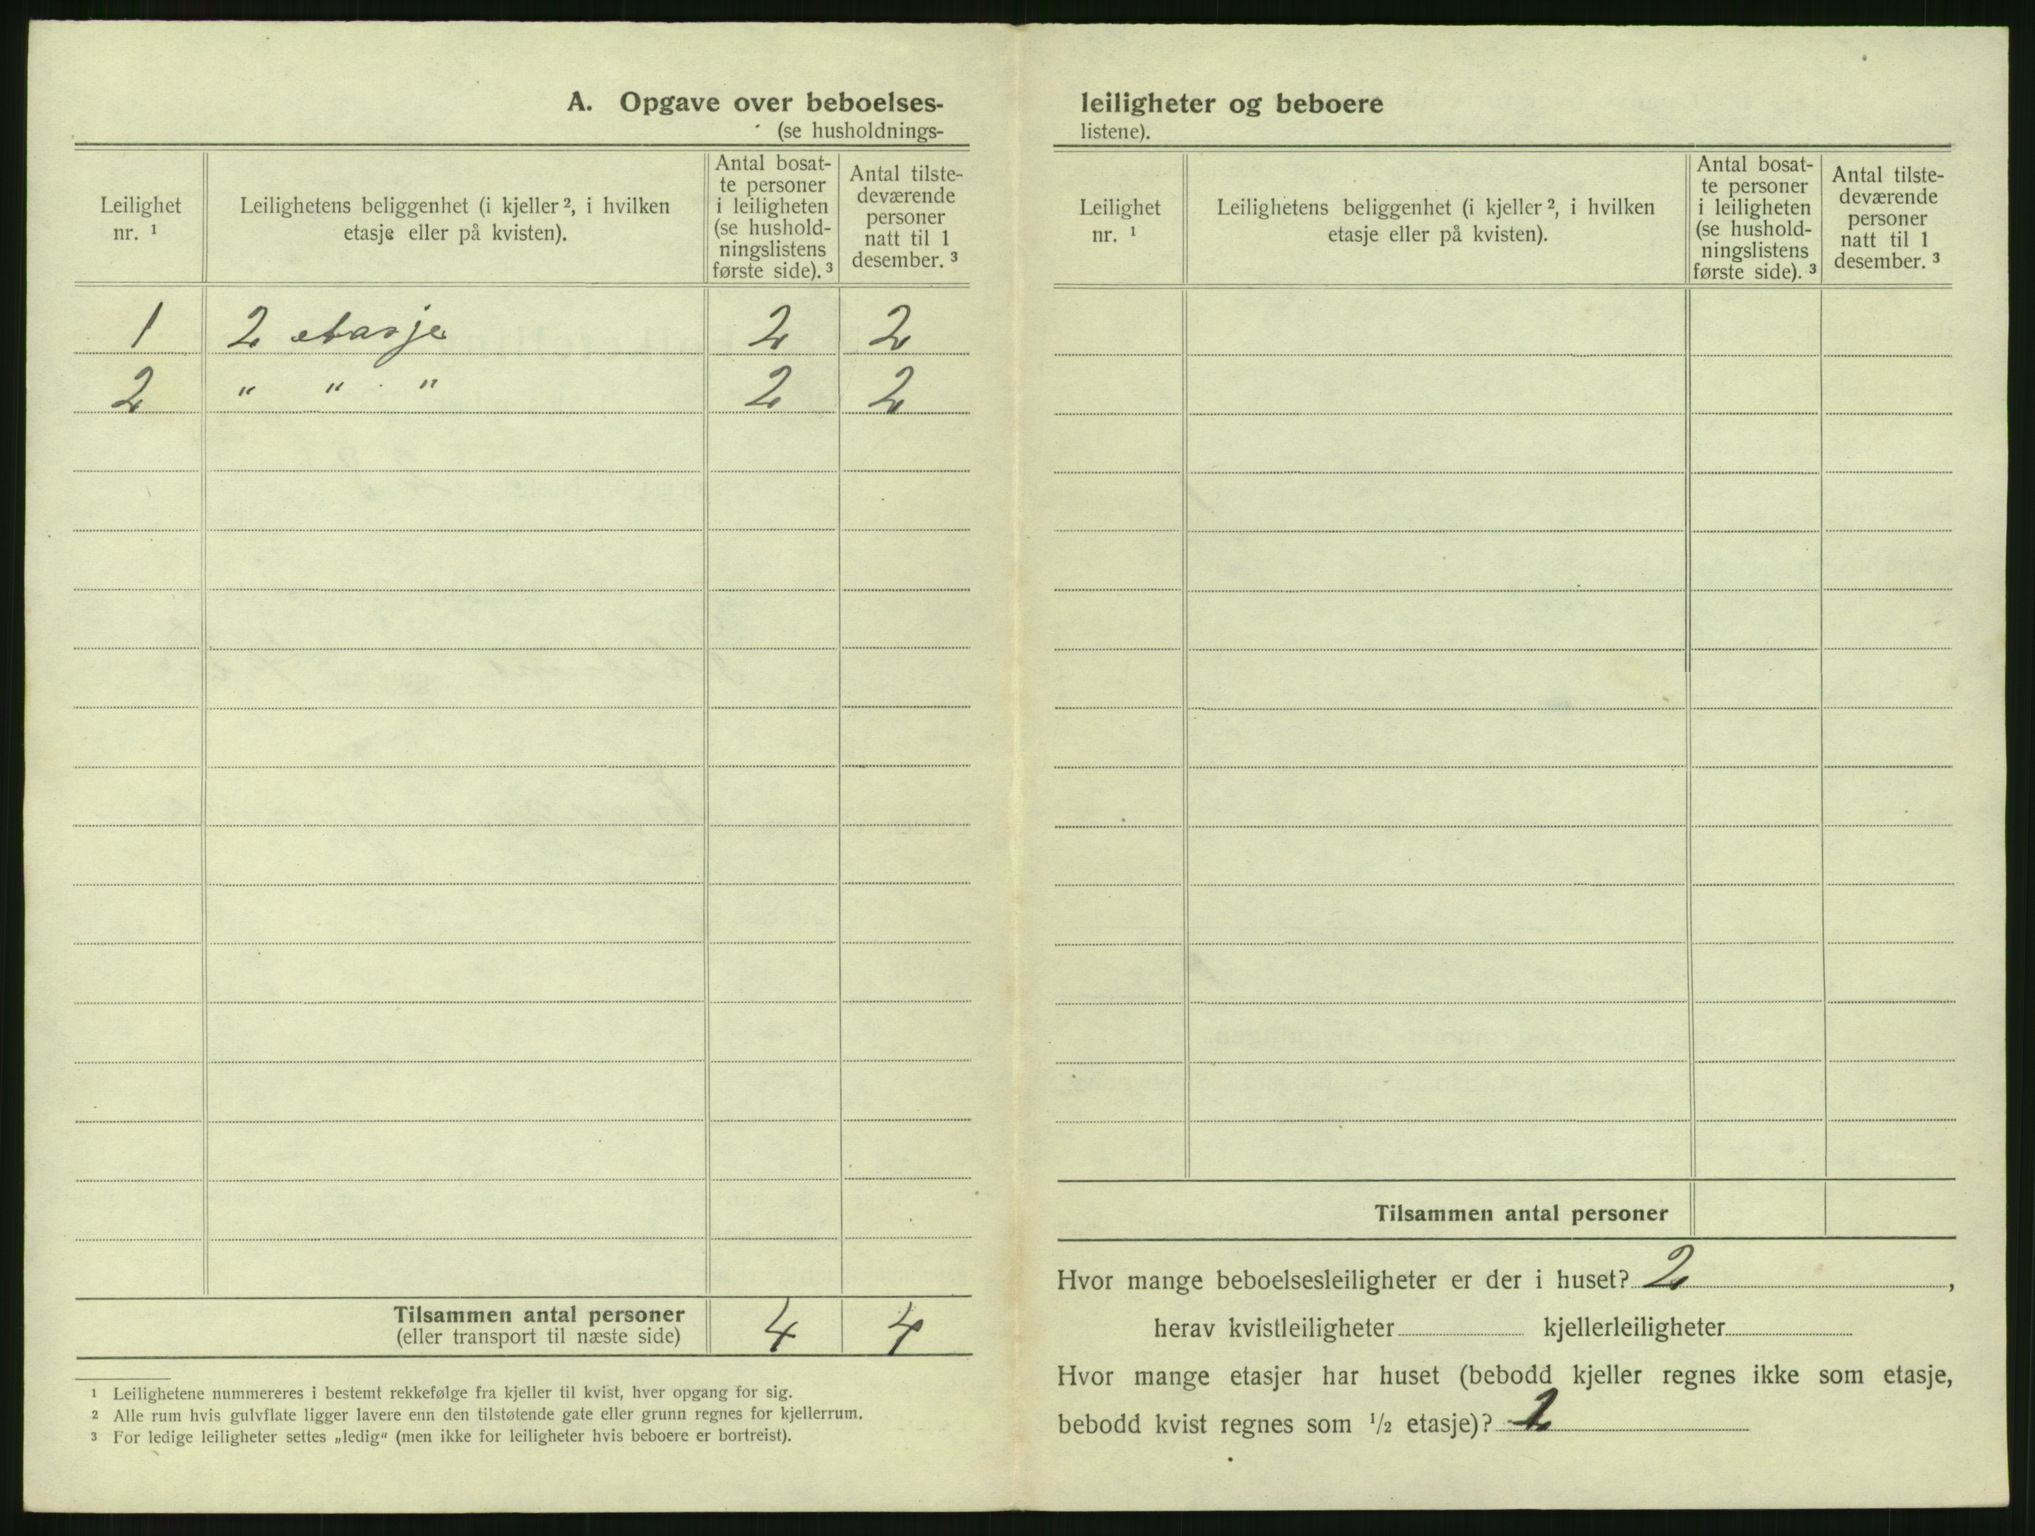 A. Opgave over beboelses-
(se husholdnings-
Leilighet
nr. ¹
Leilighetens beliggenhet (i kjeller ², i hvilken
etasje eller på kvisten).
Antal bosat-
te personer
i leiligheten
(se hushold-
ningslistens
første side). ³
Antal tilste-
deværende
personer
natt til 1
desember. ³
1 2 etasje 2 2
2 " " " 2 2
Tilsammen antal personer
(eller transport til næste side) 4 4
¹ Leilighetene nummereres i bestemt rekkefølge fra kjeller til kvist, hver opgang for sig.
² Alle rum hvis gulvflate ligger lavere enn den tilstøtende gate eller grunn regnes for kjellerrum.
³ For ledige leiligheter settes „ledig“ (men ikke for leiligheter hvis beboere er bortreist).
leiligheter og beboere
listene).
Leilighet
nr. ¹
Leilighetens beliggenhet (i kjeller ², i hvilken
etasje eller på kvisten).
Antal bosat-
te personer
i leiligheten
(se hushold-
ningslistens
første side). ³
Antal tilste-
deværende
personer
natt til 1
desember. ³
Tilsammen antal personer
Hvor mange beboelsesleiligheter er der i huset? 2 ,
herav kvistleiligheter kjellerleiligheter
Hvor mange etasjer har huset (bebodd kjeller regnes ikke som etasje,
bebodd kvist regnes som ½ etasje)?